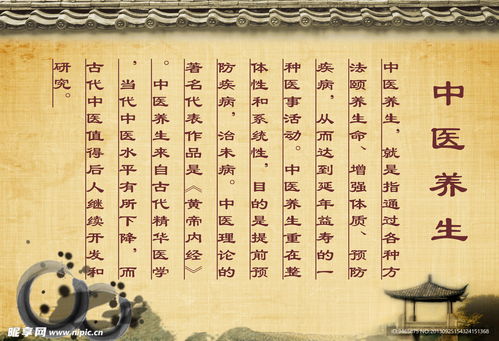 中医养生
中医养生，就是指通过各种方
法颐养生命、增强体质、预防
疾病，从而达到延年益寿的一
种医事活动。中医养生重在整
体性和系统性，目的是提前预
防疾病，治未病。中医理论的
著名代表作品是《黄帝内经》
。中医养生来自古代精华医学
，当代中医水平有所下降，而
古代中医值得后人继续开发和
研究。
昵享网 www.nipic.cn